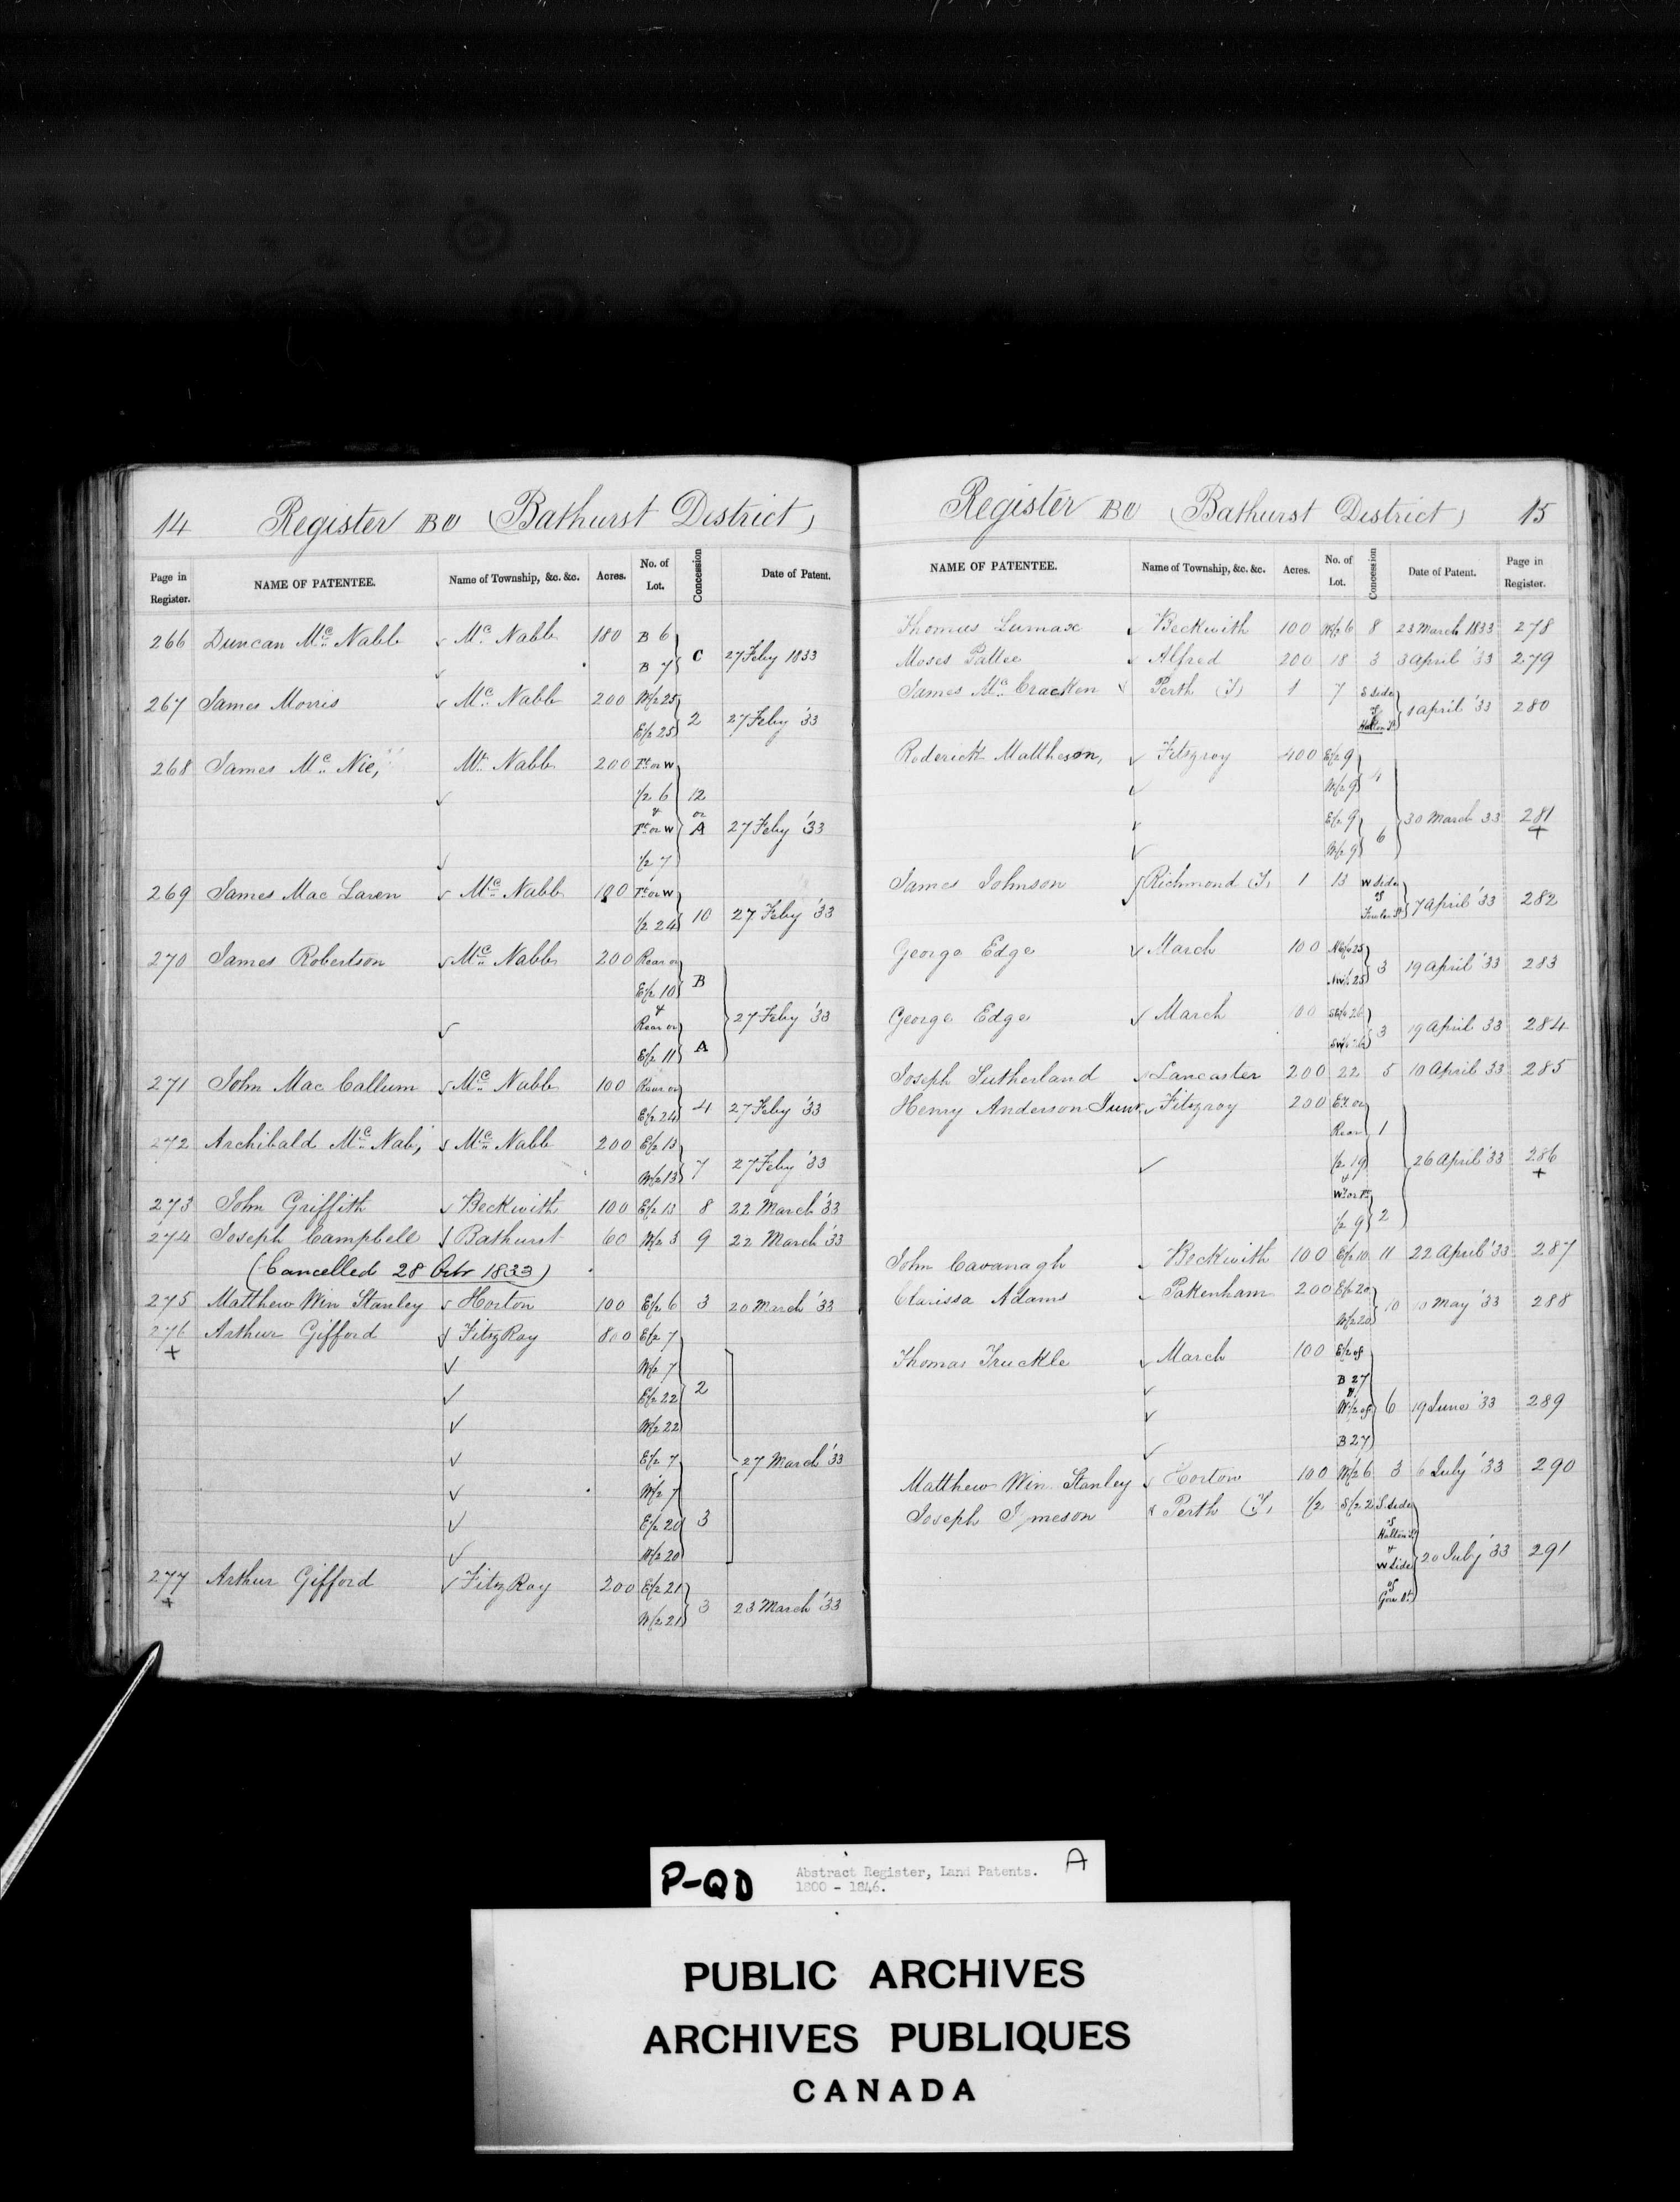 14 Register BU (Bathurst District)
Page in Register. NAME OF PATENTEE. Name of Township, &c. &c. Acres. No. of Lot. Concession Date of Patent.
266 Duncan Mc Nabb Mc Nabb 180 B 6
B 7 C 27 Feby 1833
267 James Morris Mc Nabb 200 W/2 25
E/2 25 2 27 Feby '33
268 James Mc Nie, Mc Nabb 200 Ft or W
1/2 6 12
& or
Ft or W A 27 Feby '33
1/2 7
269 James Mac Laren Mc Nabb 100 Ft or W
1/2 24 10 27 Feby '33
270 James Robertson Mc Nabb 200 Rear or
E/2 10 B
&
Rear or 27 Feby '33
E/2 11 A
271 John Mac Callum Mc Nabb 100 Rear or
E/2 24 4 27 Feby '33
272 Archibald Mc Nab, Mc Nabb 200 E/2 13
W/2 13 7 27 Feby '33
273 John Griffith Beckwith 100 E/2 13 8 22 March '33
274 Joseph Campbell Bathurst 60 W/2 3 9 22 March '33
(Cancelled 28 Octr 1833)
275 Matthew Win Stanley Horton 100 E/2 6 3 20 March '33
276 Arthur Gifford FitzRoy 800 E/2 7
+ W/2 7
E/2 22 2
W/2 22
E/2 7 27 March '33
W/2 7
E/2 20 3
W/2 20
277 Arthur Gifford FitzRoy 200 E/2 21
+ W/2 21 3 23 March '33
Register BU (Bathurst District) 15
NAME OF PATENTEE. Name of Township, &c. &c. Acres. No. of Lot. Concession Date of Patent. Page in Register.
Thomas Lumax Beckwith 100 W/2 6 8 23 March 1833 278
Moses Pattee Alfred 200 18 3 3 April '33 279
James Mc Cracken Perth (T) 1 7 S Side
of 1 April '33 280
Halton St
Roderick Matheson, Fitzroy 400 E/2 9
W/2 9 4
E/2 9 30 March 33 281
W/2 9 6 +
James Johnson Richmond (T) 1 13 W Side
of 7 April '33 282
Fowler St
George Edge March 100 NE/4 25
NW/4 25 3 19 April '33 283
George Edge March 100 SE/4 26
3 19 April 33 284
Joseph Sutherland Lancaster 200 22 5 10 April 33 285
Henry Anderson Junr. Fitzroy 200 Et or
Rear 1
1/2 19 26 April '33 286
& +
Wt or Ft
1/2 9 2
John Cavanagh Beckwith 100 E/2 10 11 22 April '33 287
Clarissa Adams Pakenham 200 E/2 20
W/2 20 10 10 May '33 288
Thomas Truckle March 100 E/2 of
B 27
&
W/2 of 6 19 June '33 289
B 27
Matthew Win Stanley Horton 100 W/2 6 3 6 July '33 290
Joseph Jameson Perth (T) 1/2 S/2 2 S Side
of
Halton St
&
W Side 20 July '33 291
of
Gore St
P-QD Abstract Register, Land Patents. A
1800 - 1846.
PUBLIC ARCHIVES
ARCHIVES PUBLIQUES
CANADA